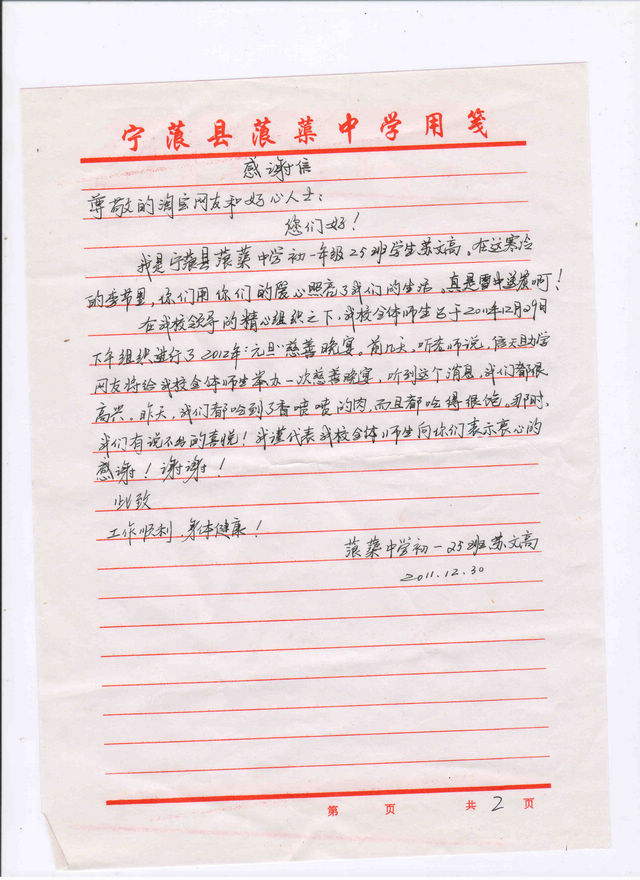 宁蒗县蒗蕖中学用笺
感谢信
尊敬的淘宝网友和好心人士：
您们好！
我是宁蒗县蒗蕖中学初一年级25班学生苏文高。在这寒冷
的季节里，你们用你们的爱心照亮了我们的生活。真是雪中送炭啊！
在我校领导的精心组织之下，我校全体师生已于2011年12月29日
下午组织进行了2012年“元旦”慈善晚宴。前几天，听老师说，信天助学
网友将给我校全体师生举办一次慈善晚宴，听到这个消息，我们都很
高兴。昨天，我们都吃到了香喷喷的肉，而且都吃得很饱。那时，
我们有说不出的喜悦！我谨代表我校全体师生向你们表示衷心的
感谢！谢谢！
此致
工作顺利，身体健康！
蒗蕖中学初一25班苏文高
2011.12.30
第 页 共2页